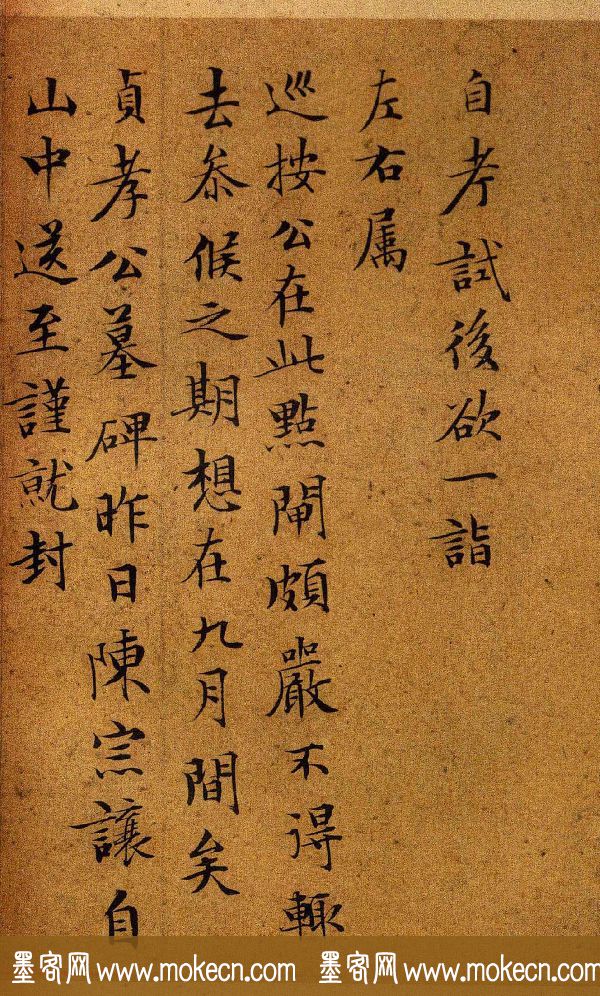 自考試後欲一詣
左右属
巡按公在此點閘頗嚴不得輙
去叅候之期想在九月間矣
貞孝公墓碑昨日陳宗讓自
山中送至謹就封
墨客网 www.mokecn.com 墨客网 www.mokecn.com